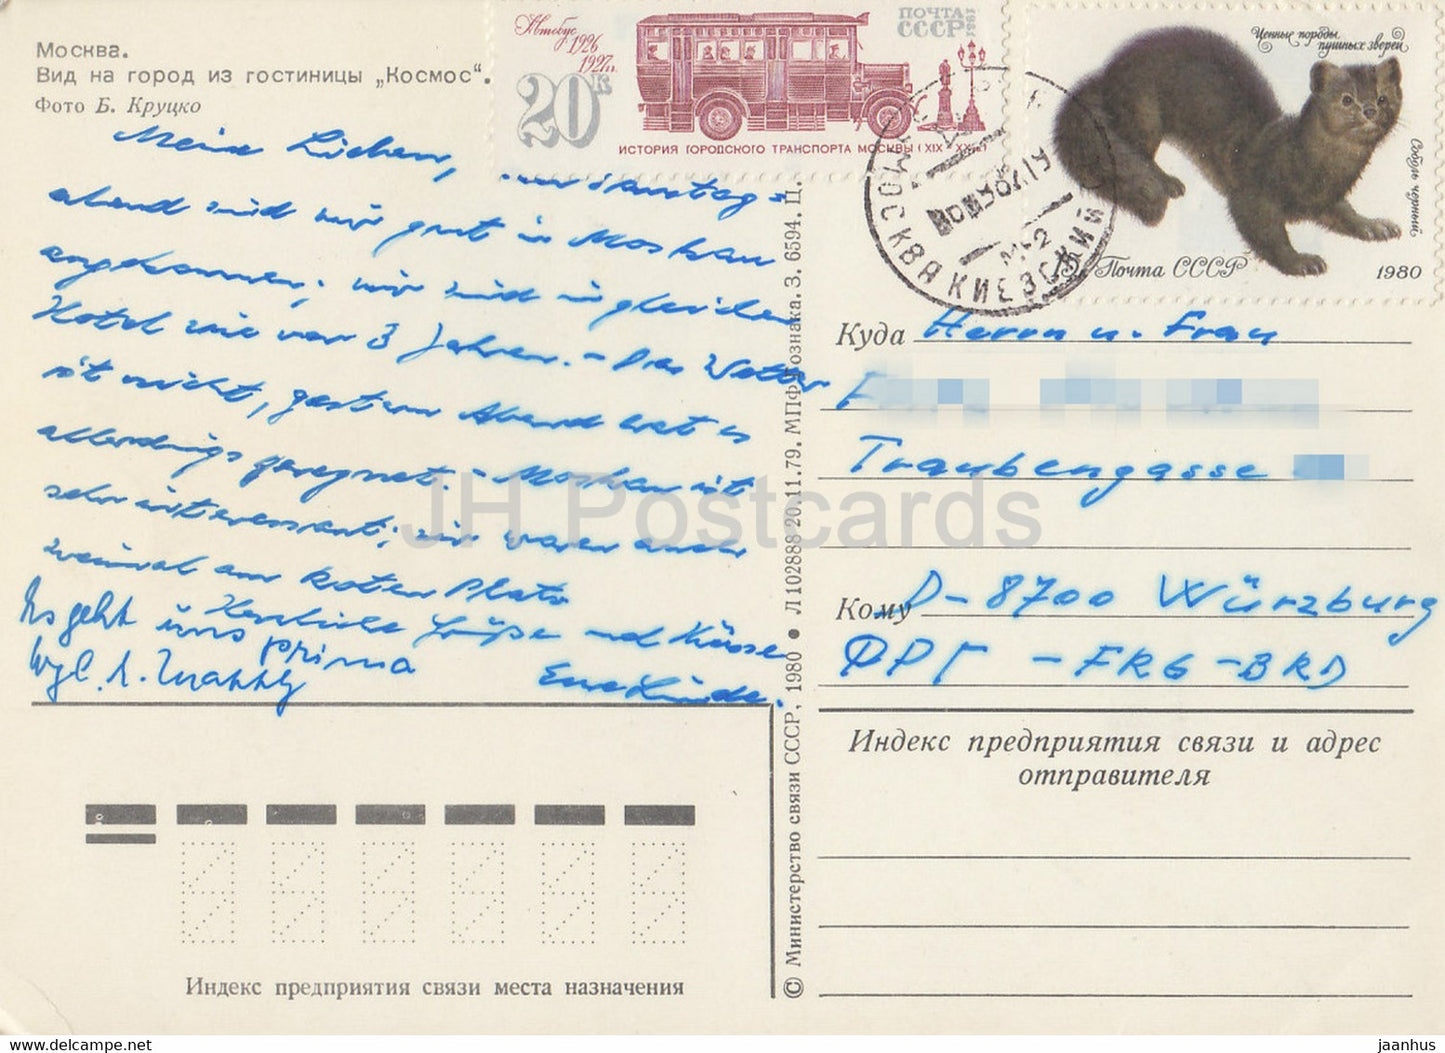 Москва.
Вид на город из гостиницы „Космос“.
Фото Б. Круцко
Автобус
1926
1927г.
20к
ПОЧТА
СССР
1981
ИСТОРИЯ ГОРОДСКОГО ТРАНСПОРТА МОСКВЫ (XIX - XX в.)
Ценные породы
пушных зверей
Соболь черный
15к Почта СССР
1980
МОСКВА КИЕВСКИЙ
Meine Lieben,
abend sind wir gut in Moskau
angekommen; wir sind im gleichen
Hotel wie vor 3 Jahren. - Das Wetter
ist nicht, gestern Abend hat es
allerdings geregnet. - Moskau ist
sehr interessant; wir waren schon
zweimal am Roten Platz
Herzliche Grüße und Küsse
Es geht
uns prima
Eure Linde.
Куда Herrn u. Frau
F
Traubengasse
Кому D-8700 Würzburg
ФРГ - FRG - BRD
Индекс предприятия связи и адрес
отправителя
Индекс предприятия связи места назначения
© Министерство связи СССР, 1980 ● Л102888 20.11.79. МПФ Гознака. З. 6594. Ц.
JH Postcards
delcampe.net
jaanhus